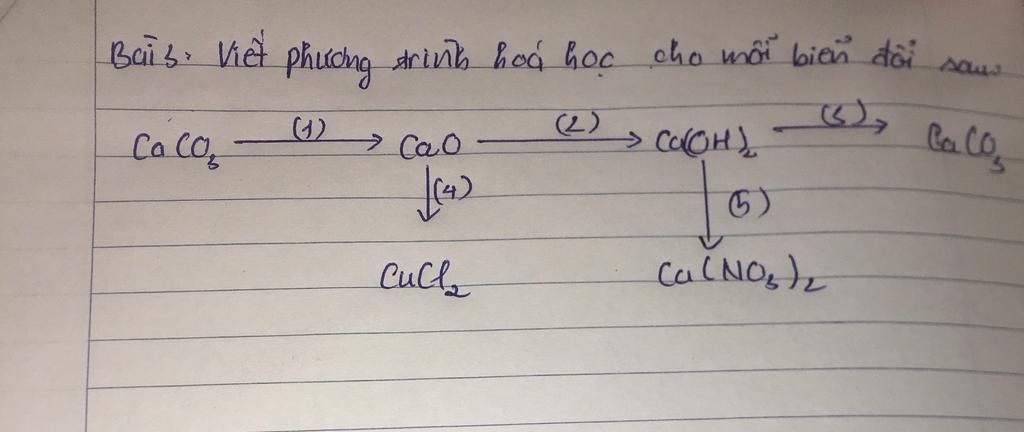 Bài 3: Viết phương trình hoá học cho mỗi biến đổi sau
CaCO3 (1) CaO (2) Ca(OH)2 (3) CaCO3
(4) (5)
CuCl2 Ca(NO3)2